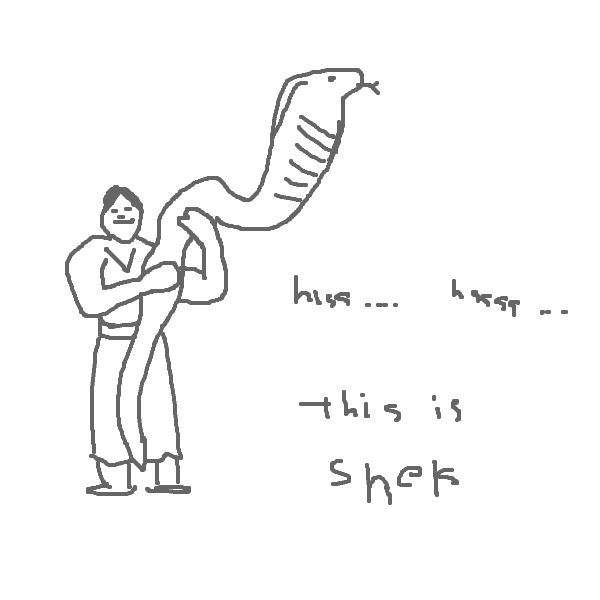 hiss.... hassss...
this is
snek